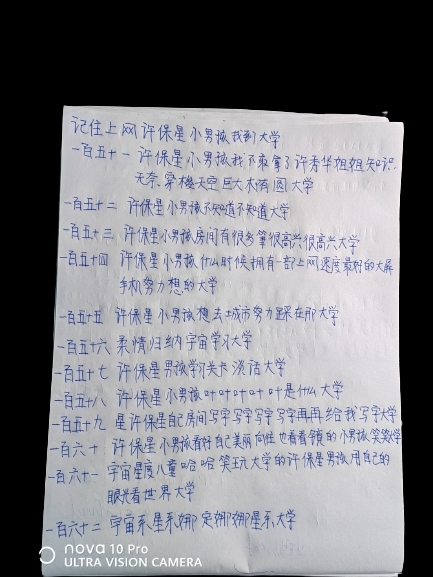 记住上网许保星小男孩我到大学
一百五十一 许保星小男孩我不乘拿了许秀华姐姐知识
天奈、穿梭天空巨大木桶圆大学
一百五十二 许保星小男孩不知道不知道大学
一百五十三 许保星小男孩房间有很多笔很高兴很高兴大学
一百五十四 许保星小男孩什么时候拥有一部上网速度最好的大屏
手机努力想的大学
一百五十五 许保星小男孩想去城市努力踩在那大学
一百五十六 柔情归纳宇宙学习大学
一百五十七 许保星男孩学习关卡谈话大学
一百五十八 许保星小男孩叶叶叶叶叶是什么大学
一百五十九 星许保星自己房间写字写字写字写字再再给我写字大学
一百六十 许保星小男孩有好自己美丽 也看看 的小男孩笑笑大学
一百六十一 宇宙星度儿童哈哈笑玩大学的许保星男孩用自己的
眼光看世界大学
一百六十二 宇宙系星系娜定娜娜星系大学
nova 10 Pro
ULTRA VISION CAMERA